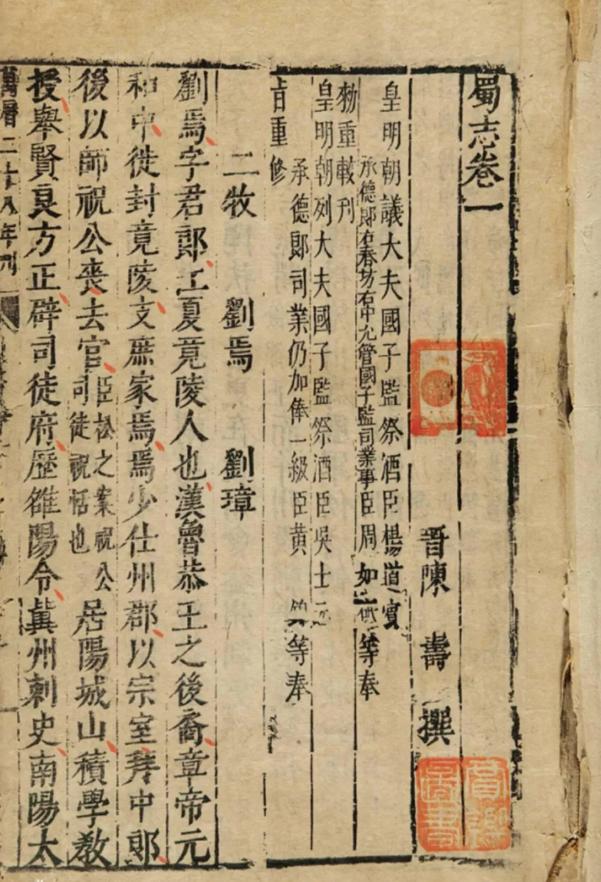 蜀志卷一
晉陳　壽　撰
皇明朝議大夫國子監祭酒臣楊道賓
承德郎右春坊右中允管國子監司業事臣周如 等奉
勑重較刊
皇明朝列大夫國子監祭酒臣吳士元
承德郎司業仍加俸一級臣黃 等奉
旨重修
二牧　劉焉　劉璋
劉焉字君郎江夏竟陵人也漢魯恭王之後裔章帝元
和中徙封竟陵支庶家焉焉少仕州郡以宗室拜中郎
後以師祝公喪去官臣松之案祝公司徒祝恬也居陽城山積學教
授舉賢良方正辟司徒府歷雒陽令冀州刺史南陽太
萬曆二十八年刊